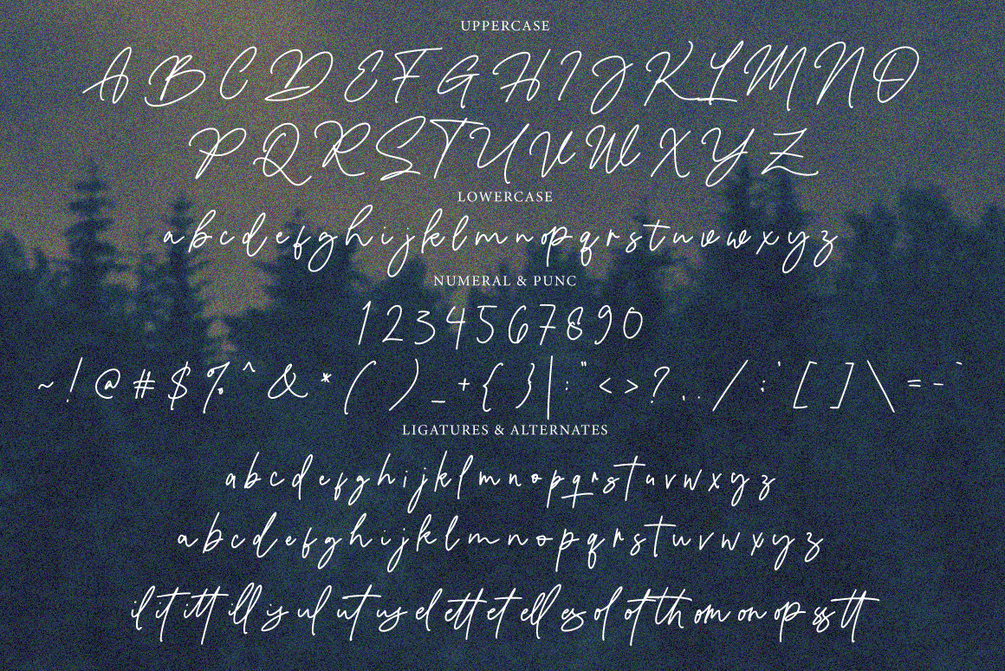 UPPERCASE
A B C D E F G H I J K L M N O
P Q R S T U V W X Y Z
LOWERCASE
a b c d e f g h i j k l m n o p q r s t u v w x y z
NUMERAL & PUNC
1 2 3 4 5 6 7 8 9 0
~ ! @ # $ % ^ & * ( ) _ + { } | : " < > ? . . / ; ' [ ] \ = - `
LIGATURES & ALTERNATES
a b c d e f g h i j k l m n o p q r s t u v w x y z
a b c d e f g h i j k l m n o p q r s t u v w x y z
il it itt ill is ul ut us el ett et ell es ol ot th om on op ss tt